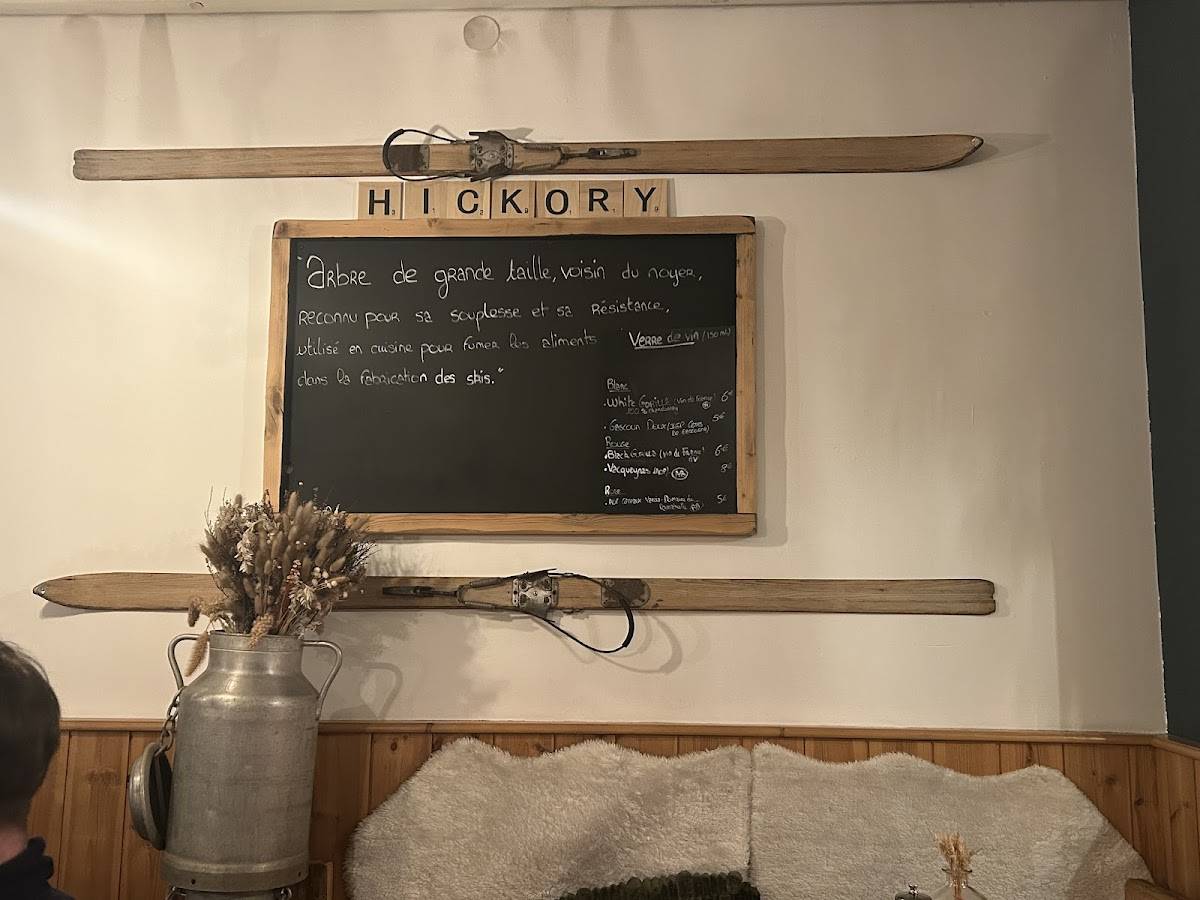 HICKORY
"Arbre de grande taille, voisin du noyer,
reconnu pour sa souplesse et sa résistance,
utilisé en cuisine pour fumer les aliments
dans la fabrication des skis."
Verre de vin /150ml
Blanc
• White (Vin de France) 6€
100% chardonnay
• Gascoun Doux/IGP 5€
Rouge
• Black (vin de France) 6€
• Vacqueyras (AOP) 8€
Rosé
5€